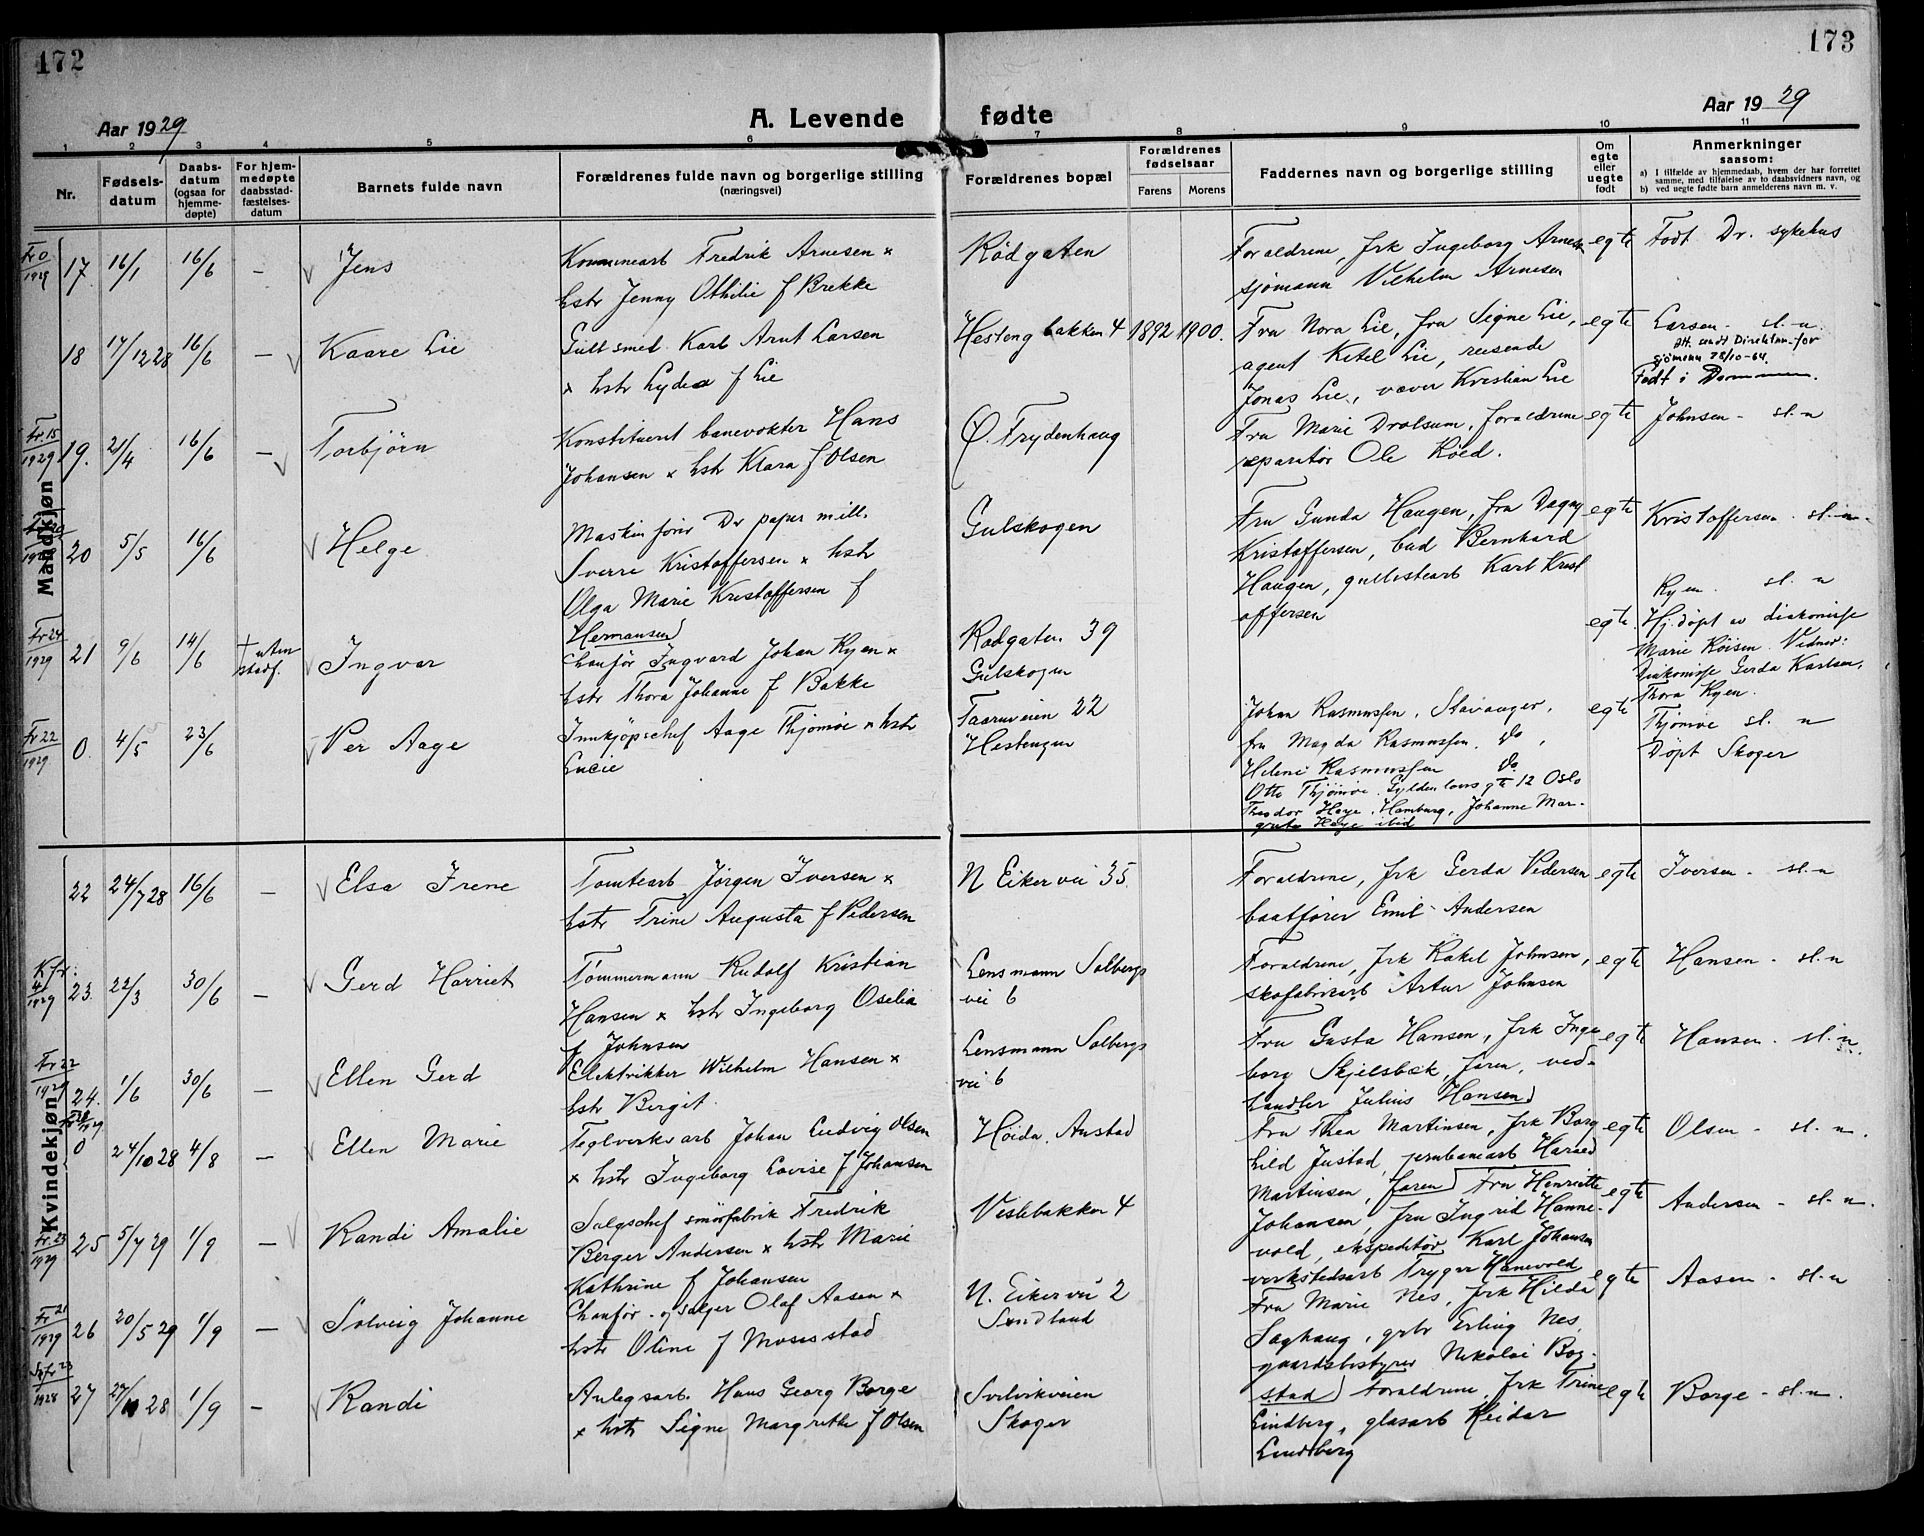 172
173
Aar 1929
A. Levende fødte
Aar 1929
1 2 3 4 5 6 7 8 9 10 11
Nr.
Fødsels-
datum
Daabs-
datum
(ogsaa for
hjemme-
døpte)
For hjem-
medøpte
daabsstad-
fæstelses-
datum
Barnets fulde navn
Forældrenes fulde navn og borgerlige stilling
(næringsvei)
Forældrenes bopæl
Forældrenes
fødselsaar
Farens Morens
Faddernes navn og borgerlige stilling
Om
egte
eller
uegte
født
Anmerkninger
saasom:
a) I tilfælde av hjemmedaab, hvem der har forrettet
samme, med tilføielse av to daabsvidners navn, og
b) ved uegte fødte barn anmelderens navn m. v.
Mandkjøn
Fr 0
1929
17. 16/1 16/6 – Jens
Kommunearb Fredrik Arnesen x
hstr Jenny Othilie f Brekke
Rødgaten
Foraldrene, frk Ingeborg Arnesen
sjømann Vilhelm Arnesen
egte
Født Dr. sykehus
18 17/12 28 16/6 – Kaare Lie
Gullsmed Karl Arnt Larsen
x hstr Lydia f Lie
Hesteng bakken 4 1892 1900.
Fru Nora Lie, fru Signe Lie,
agent Ketil Lie, reisende
Jonas Lie, væver Kristian Lie
egte
Larsen - sl. n.
Att. sendt Direktøren for
sjømenn 28/10-64.
Født i Drammen.
Fr. 15
1929
19. 21/4 16/6 – Torbjørn
Konstitueret banevokter Hans
Johansen x hstr Klara f Olsen
Ø. Frydenhaug
Fru Marie Drolsum, foraldrene
reparatør Ole Røed.
egte
Johnsen - sl. n
20 5/5 16/6 Helge
Maskinfører Dr paper mill.
Sverre Kristoffersen x hstr
Olga Marie Kristoffersen f
Hermansen
Gulskogen
Fru Gunda Haugen, fru Dagny
Kristoffersen, bud Bernhard
Haugen, gullistearb Karl Krist
offersen
egte
Kristoffersen - sl. n.
Fr 24
1929
21 9/6 14/6
stadf.
Ingvar
Chauffør Ingvard Johan Ryen x
hstr Thora Johanne f Bakke
Rødgaten 39
Gulskogen
egte.
Ryen. sl. n
Hj. døpt av diakonisse
Marie Röisen. Vidner:
Diakonisse Gerda Karlsen,
Thora Ryen.
Fr 22
1929
0. 4/5 23/6 Per Aage
Innkjøpschef Aage Thjømøe x hstr
Lucie
Taarnveien 22
Hestengen
Johan Rasmussen, Stavanger,
fru Magda Rasmussen. Do,
Helene Rasmussen Do
Otto Thjømøe. Gyldenløves gt 12 Oslo
Theodor Høye, Hamburg, Johanne Mar-
grete Høye ibid
egte
Thjømøe sl. n
Døpt Skoger
Kvindekjøn
22 24/7 28 16/6 – Elsa Irene
Tomtearb Jørgen Iversen x
hstr Trine Augusta f Pedersen
N Eiker vei 35
Foraldrene, frk Gerda Pedersen
baatfører Emil Andersen
egte
Iversen - sl. n
1929
23. 22/3 30/6 – Gerd Harriet
Tømmermann Rudolf Kristian
Hansen x hstr Ingeborg Oselia
f Johnsen
Lensmann Solbergs
vei 6
Foraldrene, frk Rakel Johnsen,
skofabrikarb Artur Johnsen
egte
Hansen - sl. n
Fr 22
1929
24. 1/6 30/6 – Ellen Gerd
Elektrikker Wilhelm Hansen x
hstr Bergit.
Lensmann Solbergs
vei 6
Fru Gusta Hansen, frk Inge
borg Skjelsbæk, faren, ved-
handler Julius Hansen
egte
Hansen - sl. n.
0 24/10 28 4/8 – Ellen Marie
Teglverksarb Johan Ludvig Olsen
x hstr Ingeborg Lovise f Johansen
Høida, Austad
Fru Thea Martinsen, frk Borg
hild Justad, jernbanearb Harald
Martinsen, faren
egte
Olsen - sl. n.
Fr. 23
1929
25 5/7 29 1/9 – Randi Amalie
Salgschef smørfabrik Fredrik
Berger Andersen x hstr Marie
Kathrine f Johansen
Vestebakken 4
Fru Henriette
Johansen, fru Ingrid Hanne-
vold, ekspeditør Karl Johansen
verkstedsarb Trygve Hanevold
egte
Andersen - sl. n.
Fr 21
1929
26 20/5 29 1/9 – Solveig Johanne
Chauffør og selger Olaf Aasen x
hstr Oline f Mosesstad
N. Eiker vei 2
Sundland
Fru Marie Nes, frk Hilda
Saghaug, grbr Erling Nes,
gaardsbestyrer Nikolai Bog-
stad
egte
Aasen - sl. n
1928
27 27/10 28 1/9 – Randi
Anlegsarb. Hans Georg Borge
x hstr Signe Margrethe f Olsen
Svelvikveien
Skoger
Foraldrene, frk Trine
Lindberg, glasarb Reidar
Lindberg
egte
Borge - sl. n.